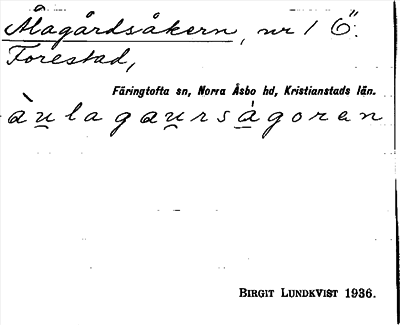 Ålagårdsåkern, nr 1 Ö.
Forestad,
Färingtofta sn, Norra Åsbo hd, Kristianstads län.
àu̲lagau̲rsȧ̲goren
BIRGIT LUNDKVIST 1936.